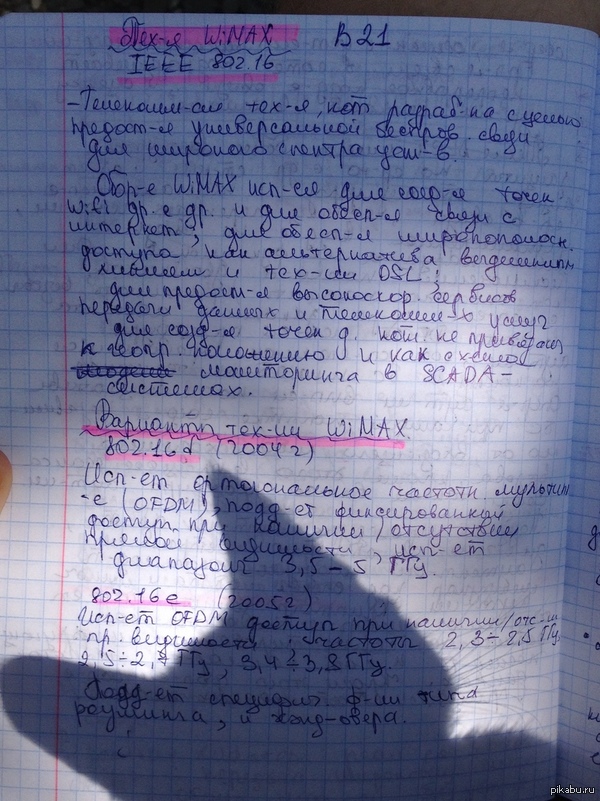 Тех-я WiMAX В21
IEEE 802.16
– Телекомм-ая тех-я, кот. разраб-на с целью
предост-я универсальной беспров. связи
для широкого спектра уст-в.
Обор-е WiMAX исп-ся для соед-я точек
Wifi др. с др. и для обесп-я связи с
интернет, для обесп-я широкополосн.
доступа, как альтернатива выделенным
линиям и тех-ии DSL;
для предост-я высокоскор. сервисов
передачи данных и телекомм-х услуг
для созд-я точек д. кот. не привязаны
к геогр. положению и как схема
мониторинга в SCADA –
системах.
Варианты тех-ии WiMAX.
802.16d (2004г)
Исп-ет ортогональное частотн мультип
-е (OFDM), подд-ет фиксированный
доступ при наличии/отсутствии
прямой видимости, исп-ет
диапазон 3,5 – 5 ГГц.
802.16e (2005г)
Исп-ет OFDM доступ при наличии/отс-ии
пр. видимости, частоты 2,3÷2,5 ГГц.
2,5÷2,7 ГГц, 3,4÷3,8 ГГц.
Подд-ет специфич. ф-ии типа
роуминга, и хэнд-овера.
pikabu.ru